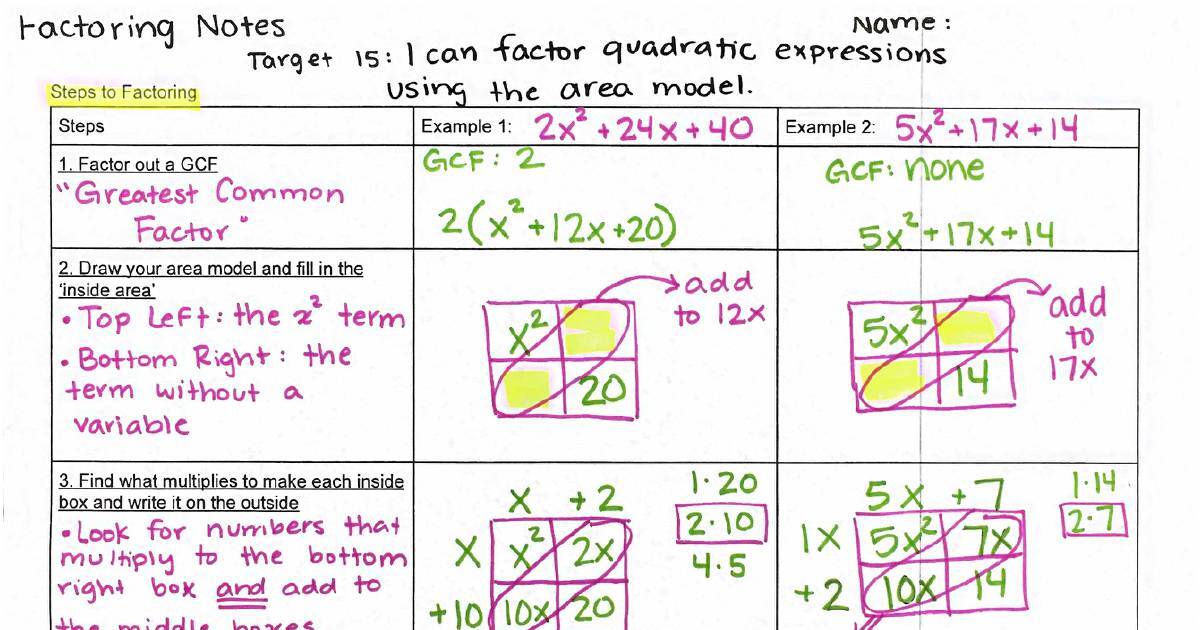 Factoring Notes
Name:
Target 15: I can factor quadratic expressions
using the area model.
Steps to Factoring
Steps
Example 1: 2x² + 24x + 40
Example 2: 5x² + 17x + 14
1. Factor out a GCF
"Greatest Common
Factor"
GCF: 2
2(x² + 12x + 20)
GCF: none
5x² + 17x + 14
2. Draw your area model and fill in the
'inside area'
• Top Left: the x² term
• Bottom Right: the
term without a
variable
add
to 12x
x²
20
add
to
17x
5x²
14
3. Find what multiplies to make each inside
box and write it on the outside
• Look for numbers that
multiply to the bottom
right box and add to
the middle boxes
x +2
x x² 2x
+10 10x 20
1·20
2·10
4·5
5x +7
1x 5x² 7x
+2 10x 14
1·14
2·7